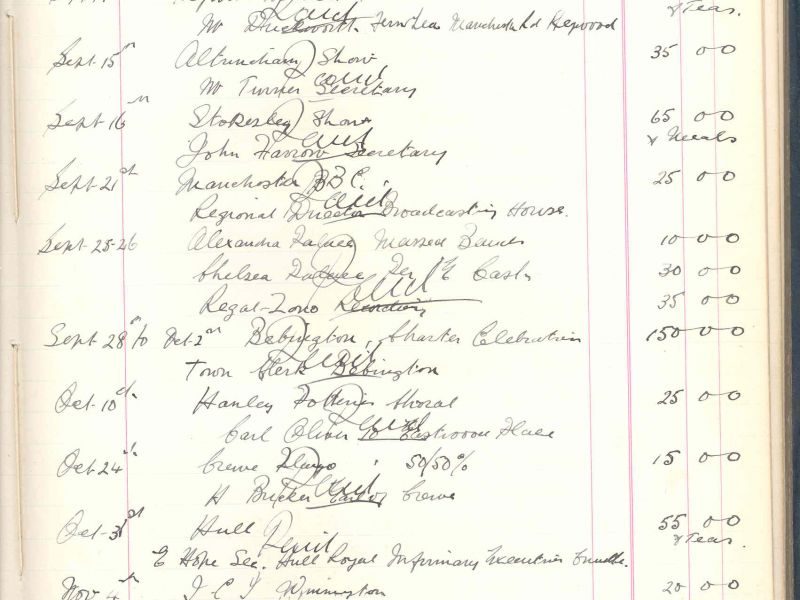 & Teas.
Mr Duckworth Fernlea Manchester Rd Heywood
Sept 15th Altrincham Show 35 00
Mr Turner Secretary
Sept 16th Stokesley Show 65 00
& Meals
John Farrow Secretary
Sept 21st Manchester BBC. 25 00
Regional Director Broadcasting House.
Sept 25-26 Alexandra Palace Massed Bands 10 00
Chelsea Palace Per E Cash 30 00
Regal-Zono Recording 35 00
Sept 28th to Oct 2nd Bebington, Charter Celebration 150 00
Town Clerk Bebington
Oct 10th Hanley Choral 25 00
Carl Oliver 10 Eastwood Place
Oct 24th Crewe 50/50% 15 00
H Crewe
Oct 31st Hull 55 00
& Teas.
E Hope Sec. Hull Royal Infirmary Executive
Nov 4th I C I Winnington 20 00